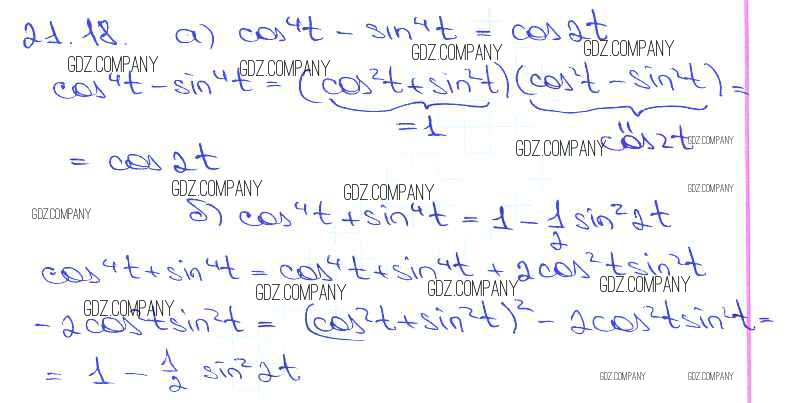 21.18. а) cos⁴t − sin⁴t = cos2t
GDZ.COMPANY GDZ.COMPANY GDZ.COMPANY GDZ.COMPANY
cos⁴t − sin⁴t = (cos²t + sin²t)(cos²t − sin²t) =
= 1
" cos2t
GDZ.COMPANY GDZ.COMPANY
= cos2t
GDZ.COMPANY GDZ.COMPANY GDZ.COMPANY
GDZ.COMPANY
б) cos⁴t + sin⁴t = 1 − 1/2 sin²2t
cos⁴t + sin⁴t = cos⁴t + sin⁴t + 2cos²tsin²t
GDZ.COMPANY GDZ.COMPANY GDZ.COMPANY GDZ.COMPANY
− 2cos²tsin²t = (cos²t + sin²t)² − 2cos²tsin²t =
= 1 − 1/2 sin²2t
GDZ.COMPANY GDZ.COMPANY